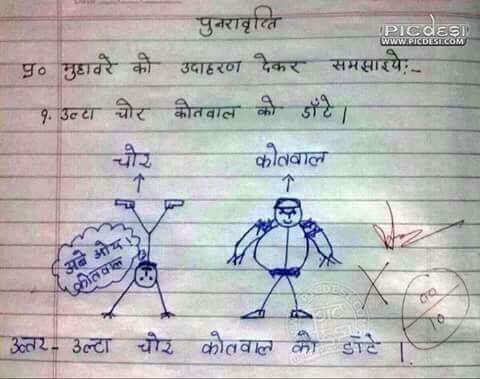 पुनरावृत्ति
PICdESI
WWW.PICDESI.COM
प्र० मुहावरे को उदाहरण देकर समझाइये:-
१. उल्टा चोर कोतवाल को डाँटे |
चोर कोतवाल
अबे ओय
कोतवाल
00
10
उत्तर- उल्टा चोर कोतवाल को डाँटे |